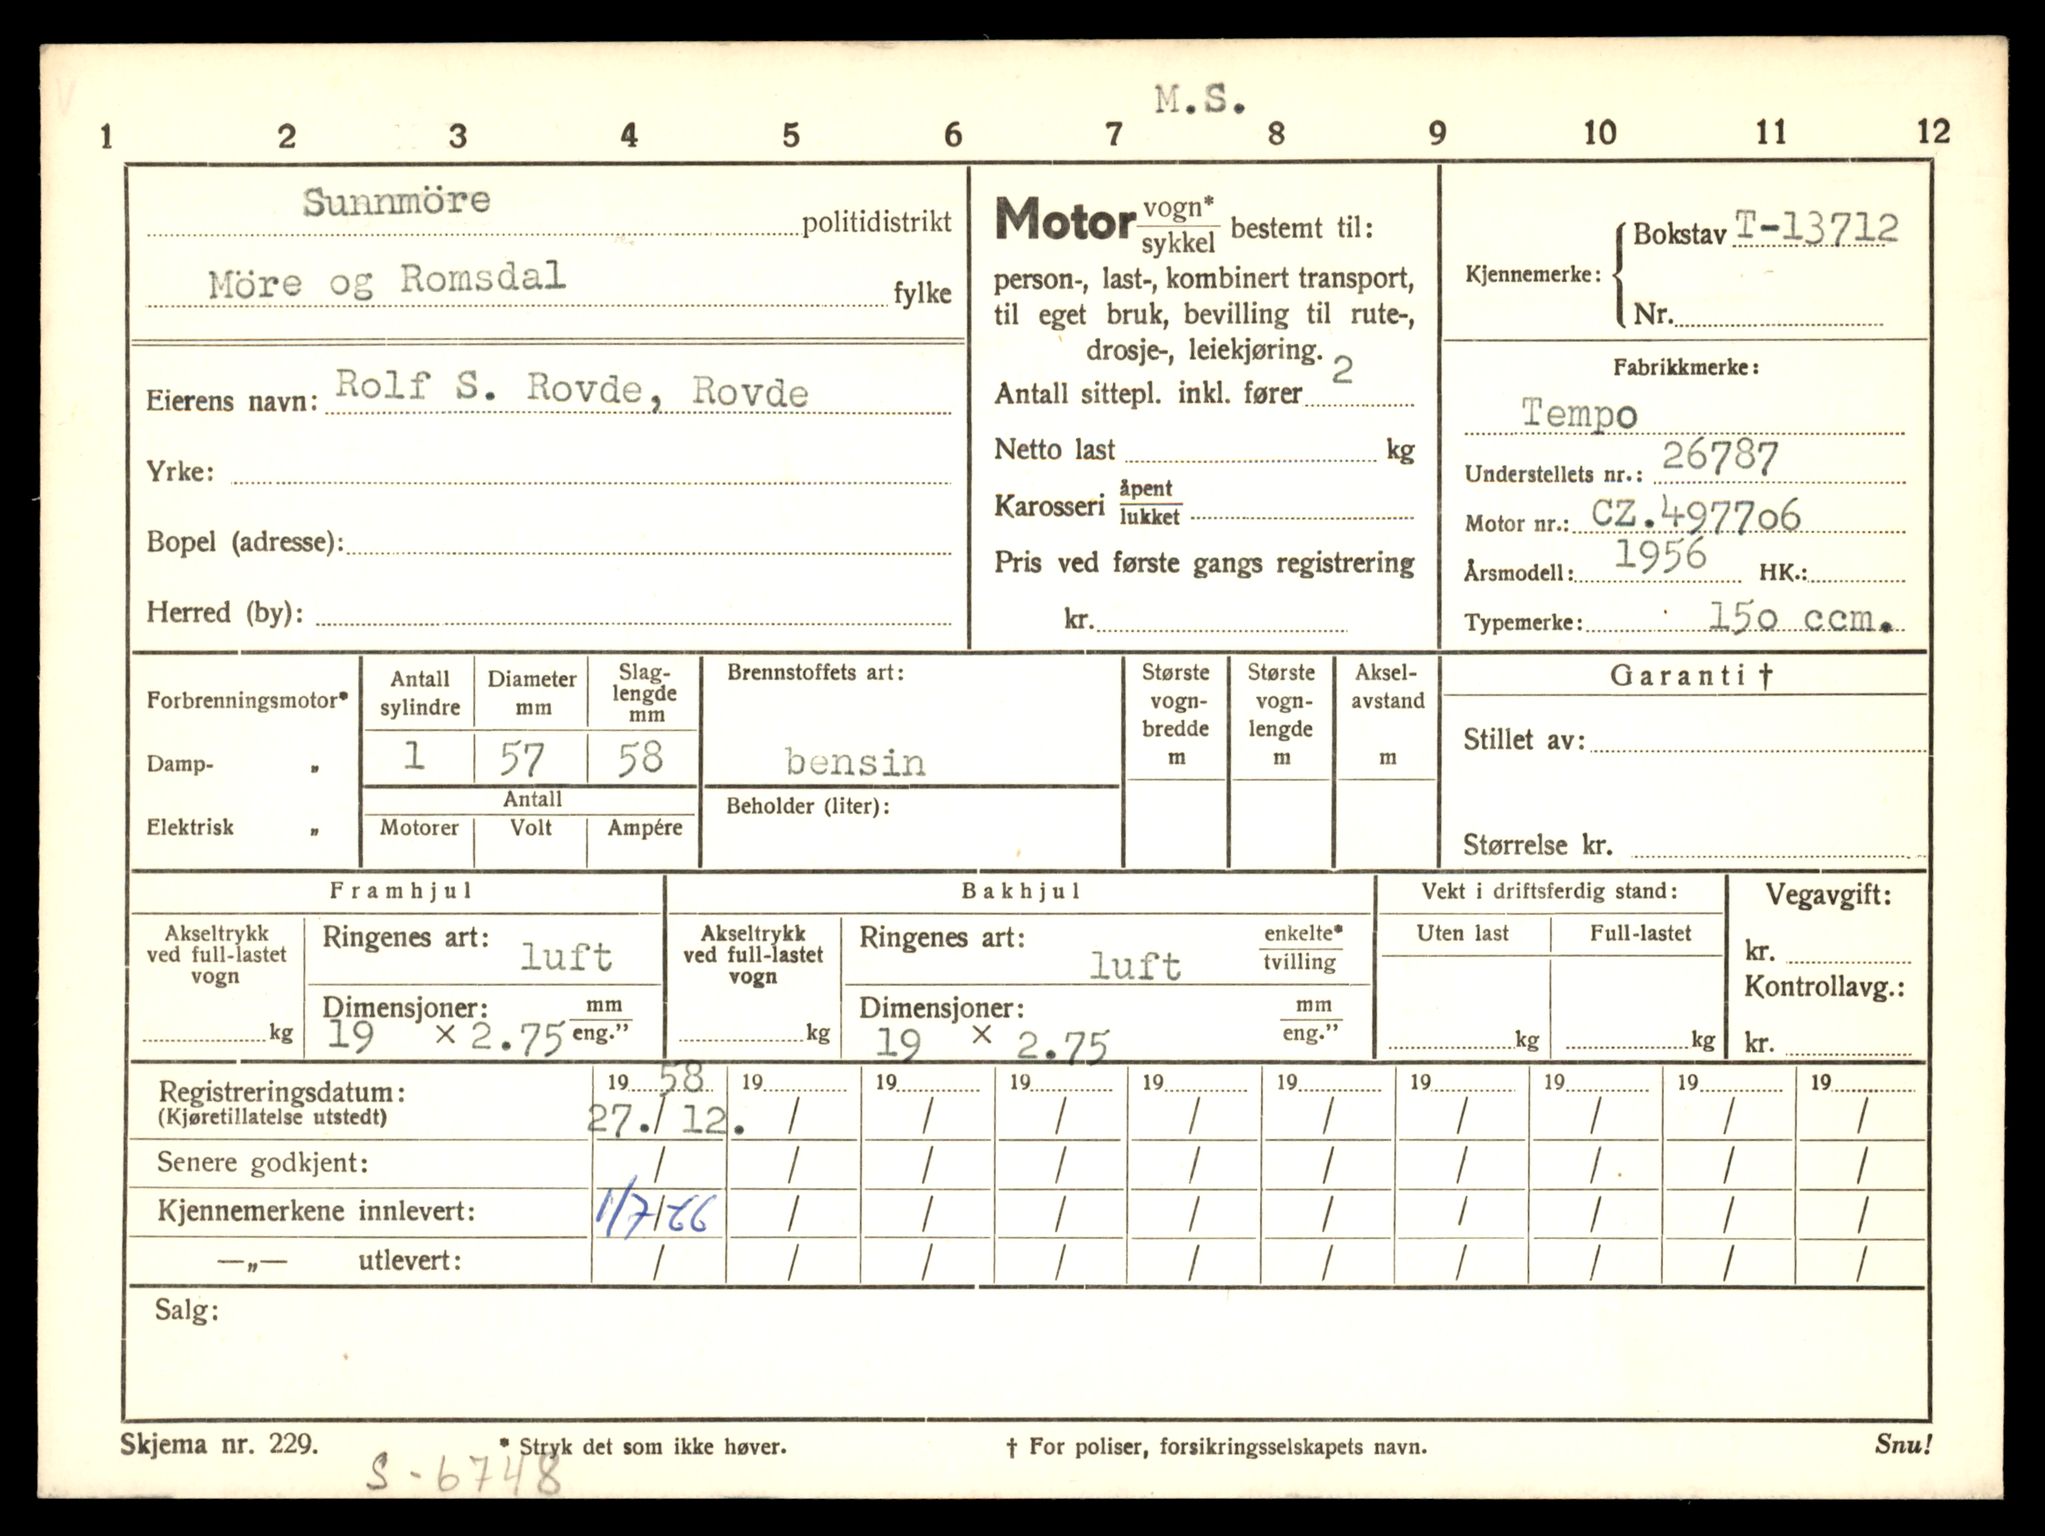 M.S.
1 2 3 4 5 6 7 8 9 10 11 12
Sunnmöre politidistrikt
Möre og Romsdal fylke
Eierens navn: Rolf S. Rovde, Rovde
Yrke:
Bopel (adresse):
Herred (by):
Motor vogn* / sykkel bestemt til:
person-, last-, kombinert transport,
til eget bruk, bevilling til rute-,
drosje-, leiekjøring.
Antall sittepl. inkl. fører 2
Netto last kg
Karosseri åpent / lukket
Pris ved første gangs registrering
kr.
Kjennemerke: Bokstav T-13712
Nr.
Fabrikkmerke:
Tempo
Understellets nr.: 26787
Motor nr.: CZ.497706
Årsmodell: 1956 HK.:
Typemerke: 150 ccm.
Forbrenningsmotor*
Damp- „
Elektrisk „
Antall sylindre
Diameter mm
Slag-
lengde
mm
1 57 58
Antall
Motorer Volt Ampére
Brennstoffets art:
bensin
Beholder (liter):
Største
vogn-
bredde
m
Største
vogn-
lengde
m
Aksel-
avstand
m
Garanti †
Stillet av:
Størrelse kr.
Framhjul
Akseltrykk
ved full-lastet
vogn
kg
Ringenes art: luft
Dimensjoner: mm / eng.”
19 × 2.75
Bakhjul
Akseltrykk
ved full-lastet
vogn
kg
Ringenes art: luft enkelte* / tvilling
Dimensjoner: mm / eng.”
19 × 2.75
Vekt i driftsferdig stand:
Uten last Full-lastet
kg kg
Vegavgift:
kr.
Kontrollavg.:
kr.
Registreringsdatum: 19 58 19 19 19 19 19 19 19 19 19
(Kjøretillatelse utstedt) 27. / 12. / / / / / / / / /
Senere godkjent: / / / / / / / / / /
Kjennemerkene innlevert: 1/7/66 / / / / / / / / /
—„— utlevert: / / / / / / / / / /
Salg:
Skjema nr. 229. * Stryk det som ikke høver. † For poliser, forsikringsselskapets navn. Snu!
S-6748